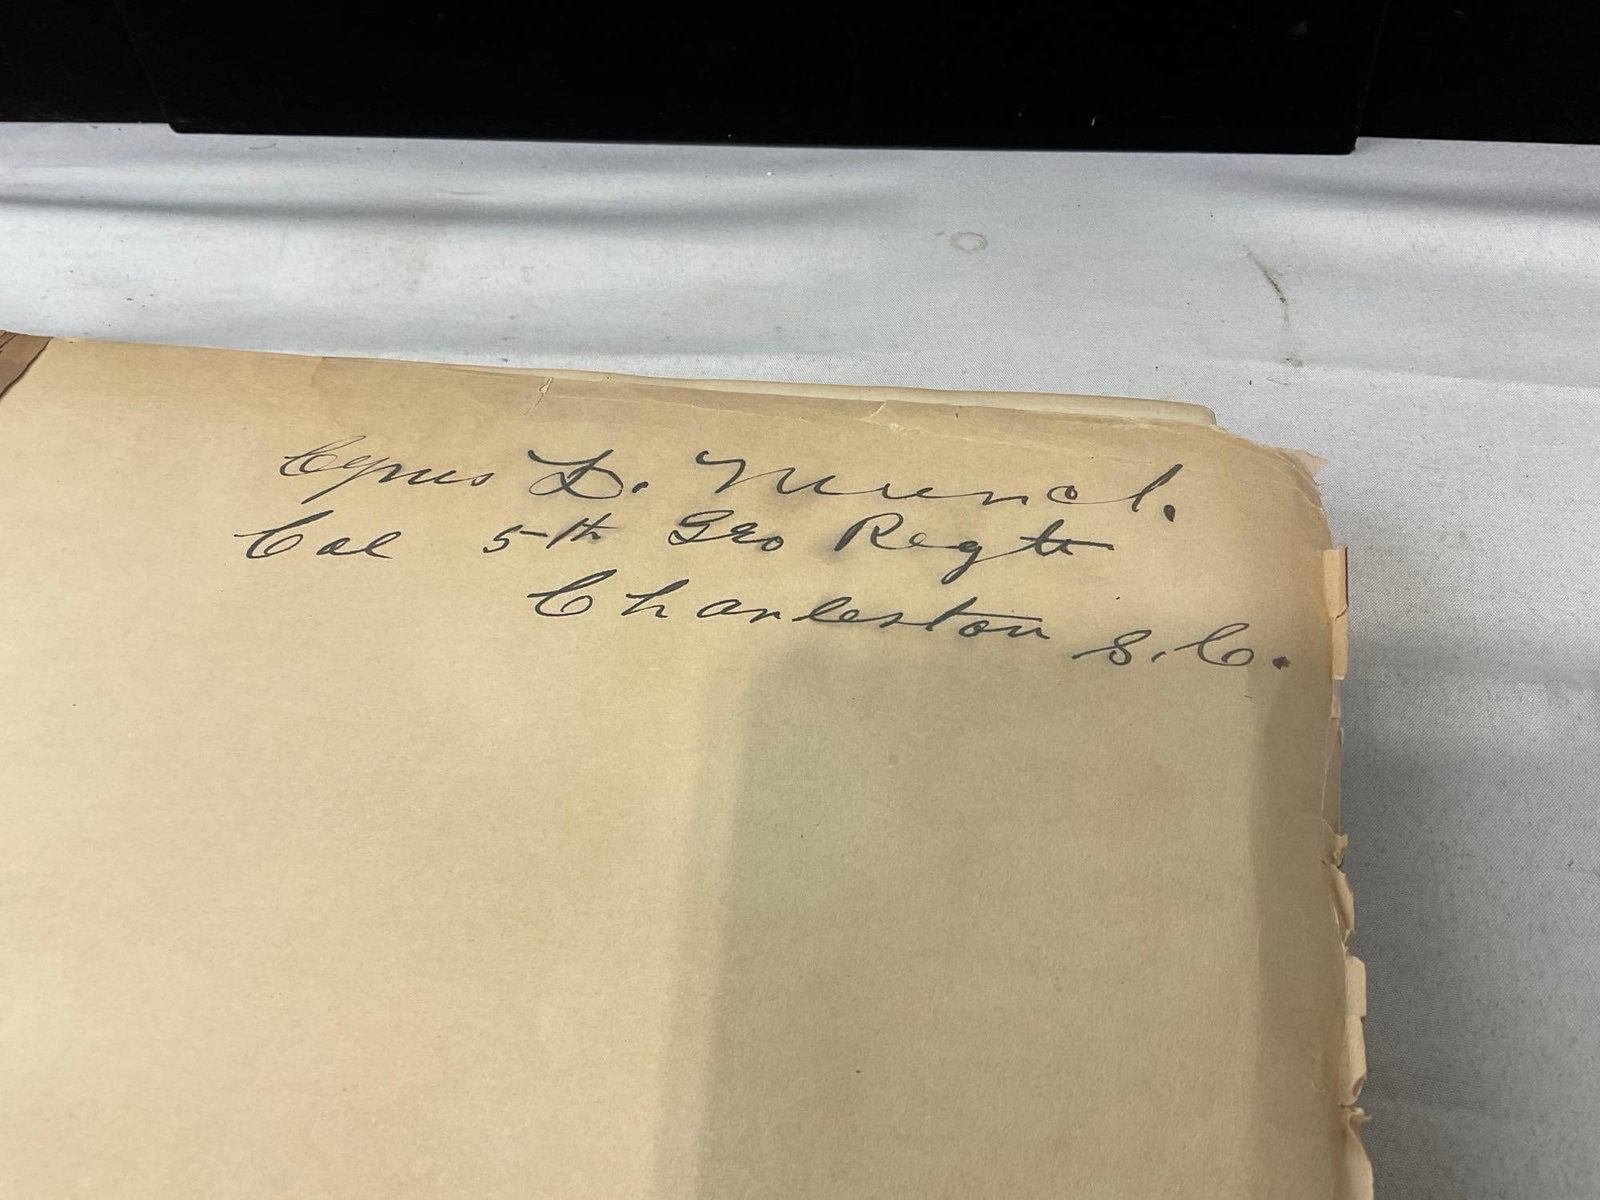 Cyrus D.
Col 5th Geo Regt
Charleston S.C.